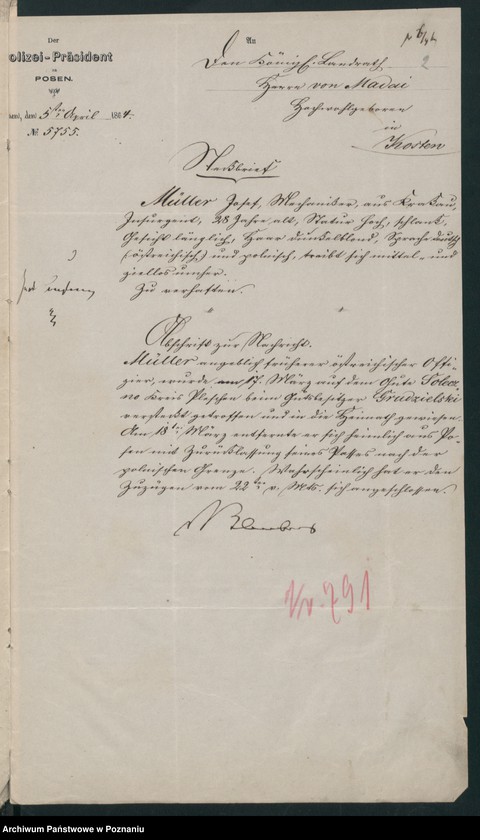 Der
olizei-Präsident
in
POSEN.
den 5ten April 1864.
№ 5755.
An
Den Königl. Landrath
Herrn von Madai
Hochwohlgeboren
in
Kosten
2
Steckbrief
Müller Josef, Mechaniker, aus Krakau,
Insurgent, 28 Jahre alt, Statur hoch, schlank,
Gesicht länglich, Haar dunkelblond, Sprache deutsch
(östreichisch) und polnisch, treibt sich mittel- und
ziellos umher.
Zu verhaften.
Abschrift zur Nachricht.
Müller angeblich früherer östreichischer Offi-
zier, wurde am 17. März auf dem Gute
no Kreis Pleschen beim Gutsbesitzer Grudzielski
versteckt getroffen und in die Heimath gewiesen.
Am 18ten März entfernte er sich heimlich aus Po-
sen mit Zurücklassung seines Passes nach der
polnischen Grenze. Wahrscheinlich hat er den
Zuzügen vom 22ten v. Mts. sich angeschlossen.
791
Archiwum Państwowe w Poznaniu